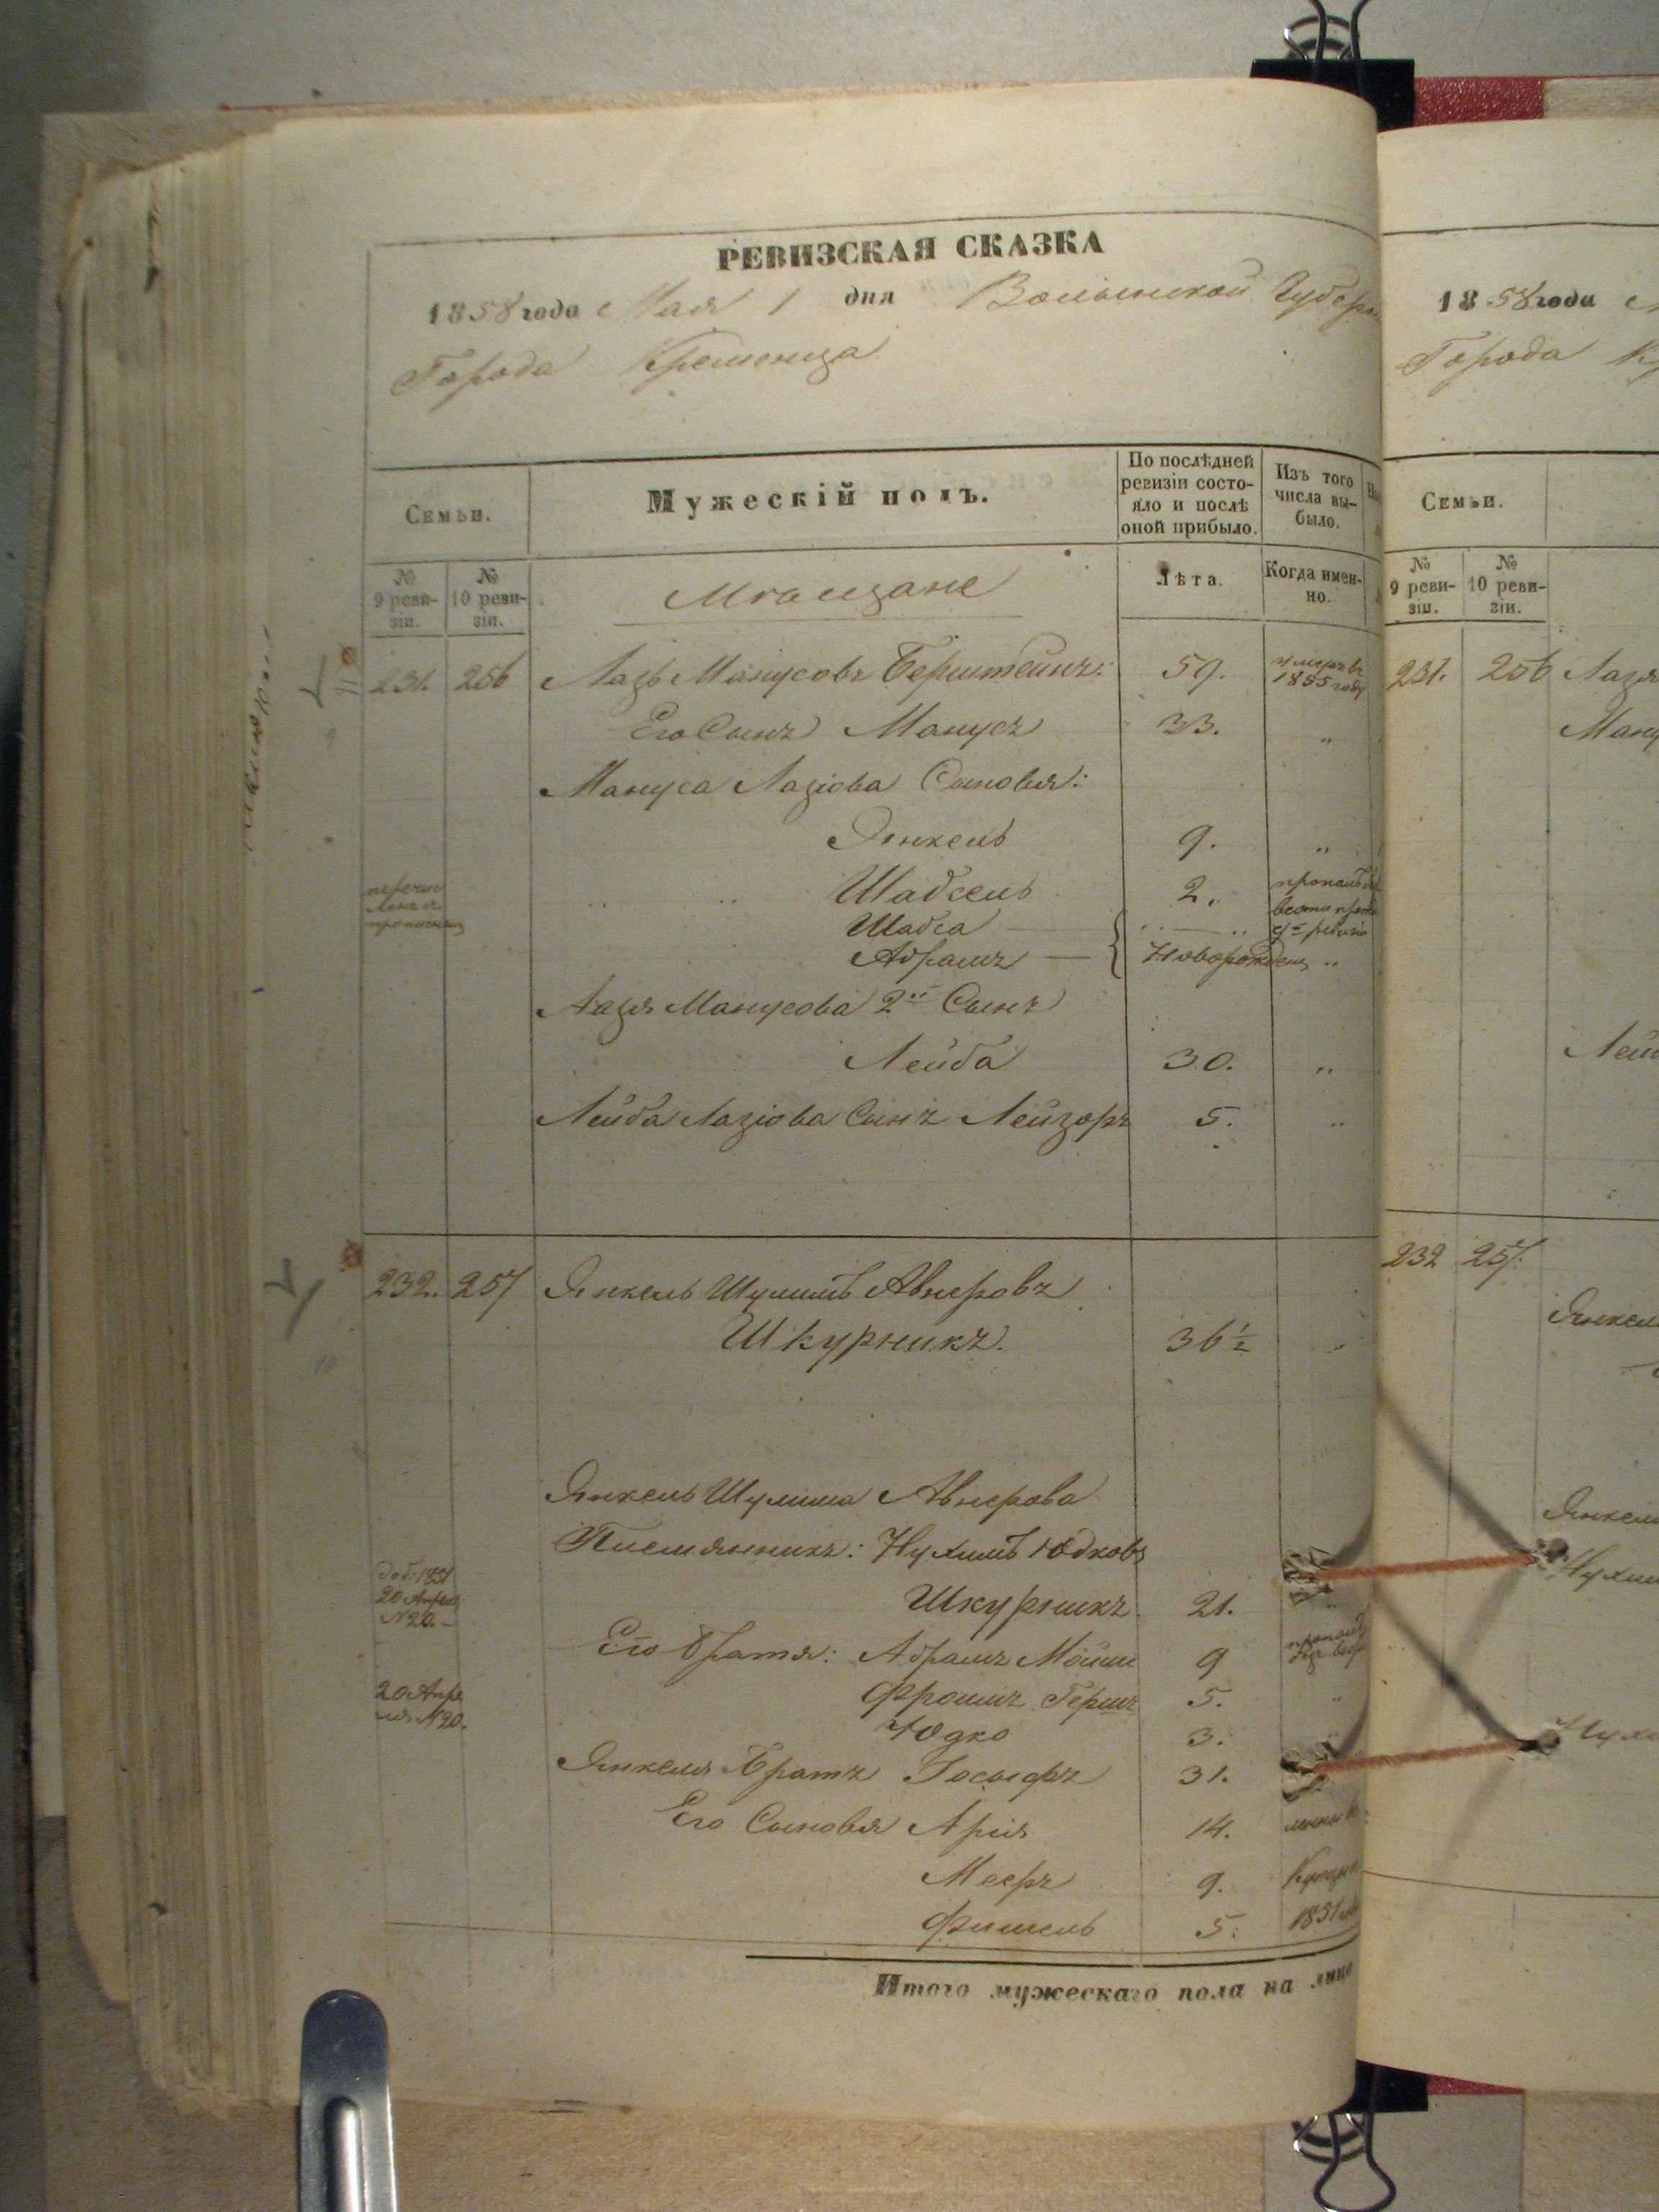 РЕВИЗСКАЯ СКАЗКА
1858 года Мая 1 дня Волынской Губерн
Города Кременца
Семьи.
Мужескій полъ.
По послѣдней ревизіи состо-
яло и послѣ
оной прибыло.
Изъ того
числа вы-
было.
№
9 реви-
зіи.
№
10 реви-
зіи.
Мѣщане
Лѣта.
Когда имен-
но.
231. 256 Лазь Манусовъ Берштейнъ: 59. умеръ въ
1855 году
Его Сынъ Манусъ 33. „
Мануса Лазіова Сыновья:
Янкель 9. „
Шабсель 2. пропалъ
Шабса
Абрамъ Новорожден „
Лазя Манусова 2й Сынъ
Лейба 30. „
Лейба Лазіова Сынъ Лейзоръ 5. „
232. 257 Янкель Шулимъ Авнеровъ
Шкурникъ. 36½ „
Янкель Шулима Авнерова
Племянникъ: Нухимъ Юдковъ
доб. 1851
20 Апреля
№20.
Шкурникъ 21. „
Его братя: Абрамъ Мошко 9 пропалъ
безъ вес
20 Апре
ля №20.
Фроимъ Гершъ 5. „
Юдко 3. „
Янкеля Братъ Іосыфъ 31.
Его Сыновя Арія 14.
Мееръ 9. Купцы
Фишель 5. 1851
Итого мужескаго пола на лицо
1858 года
Города
Семьи.
№
9 реви-
зіи.
№
10 реви-
зіи.
231. 256 Лазя
Ману
Лейб
232 257.
Янкел
Янкел
Нухим
Нухи